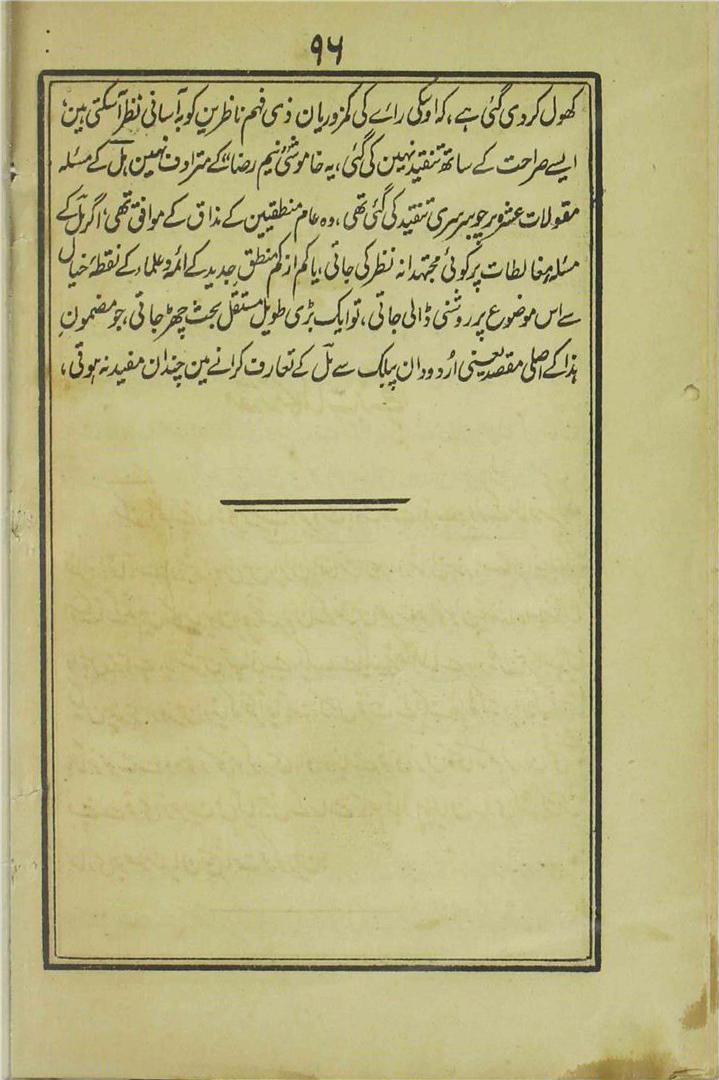 ۹۶
کھول کر دی گئی ہے، کہ اوسکی رائے کی کمزوریان ذی فہم ناظرین کو بہ آسانی نظر آسکتی ہین،
ایسے صراحت کے ساتھ تنقید نہین کی گئی، یہ خاموشی "نیم رضا" کے مترادف نہین، مل کے مسئلہ
مقولات عشر پر جو سرسری تنقید کی گئی تھی، وہ عام منطقیین کے مذاق کے موافق تھی، اگر مل کے
مسئلہ مغالطات پر کوئی مجتہدانہ نظر کی جاتی، یا کم از کم منطقِ جدید کے ائمہ و علماء کے نقطۂ خیال
سے اس موضوع پر روشنی ڈالی جاتی، تو ایک بڑی طویل مستقل بحث چھڑ جاتی، جو مضمون
ہذا کے اصلی مقصد یعنی اُردودان پبلک سے مل کے تعارف کرانے مین چندان مفید نہ ہوتی،